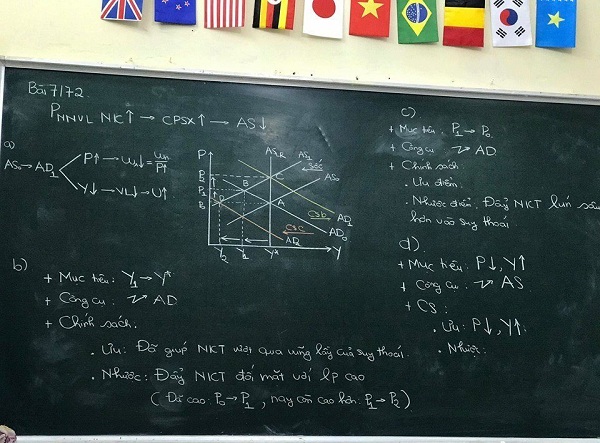 Bài 7/72.
P NNVL NK ↑ → CPSX ↑ → AS ↓
a)
AS₀ → AD₁
P↑ → Wr↓ = Wn/P↑
Y↓ → VL↓ → U↑
P
AS LR
AS₁
AS₀
Sốc
P₂
P₁
P₀
B
C
D
A
CSb
CSc
AD₁
AD₀
AD₂
Y₂
Y₁
Y*
Y
b)
+ Mục tiêu: Y₁ → Y*
+ Công cụ: AD
+ Chính sách.
. Ưu: Đã giúp NKT vượt qua vũng lầy của suy thoái.
. Nhược: Đẩy NKT đối mặt với lp cao
(Đã cao: P₀ → P₁, nay còn cao hơn: P₁ → P₂)
c)
+ Mục tiêu: P₁ → P₀.
+ Công cụ AD.
+ Chính sách
. Ưu điểm.
. Nhược điểm: Đẩy NKT lún sâu
hơn vào suy thoái.
d).
+ Mục tiêu: P↓, Y↑
+ Công cụ: AS
+ CS:
. Ưu: P↓, Y↑.
. Nhược: